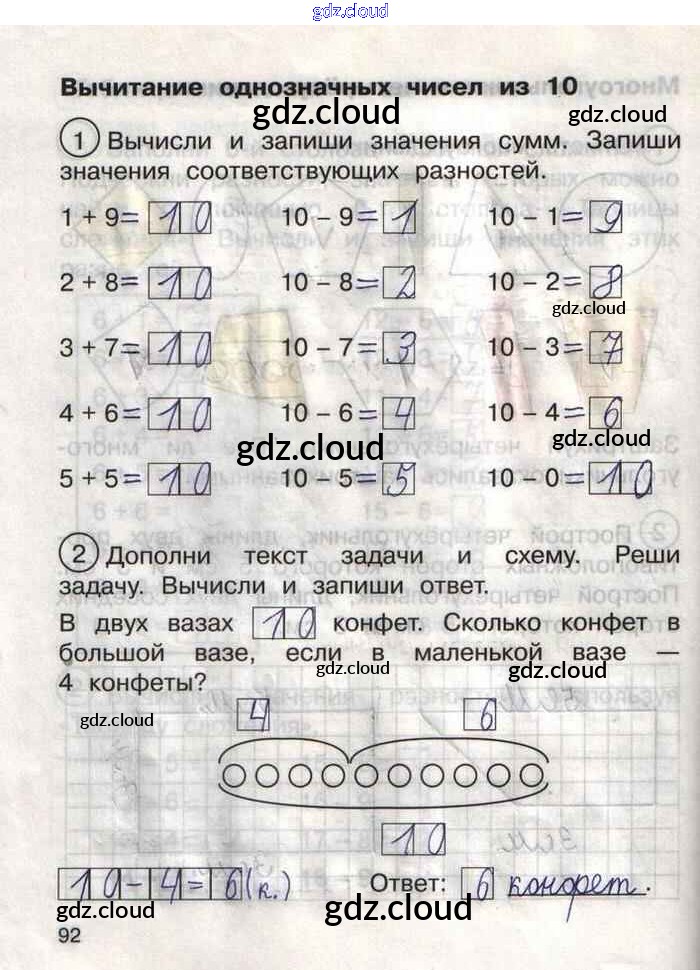 gdz.cloud
Вычитание однозначных чисел из 10
gdz.cloud gdz.cloud
1 Вычисли и запиши значения сумм. Запиши
значения соответствующих разностей.
1 + 9= 10 10 – 9= 1 10 – 1= 9
2 + 8= 10 10 – 8= 2 10 – 2= 8
gdz.cloud
3 + 7= 10 10 – 7= 3 10 – 3= 7
4 + 6= 10 10 – 6= 4 10 – 4= 6
gdz.cloud gdz.cloud
5 + 5= 10 10 – 5= 5 10 – 0= 10
2 Дополни текст задачи и схему. Реши
задачу. Вычисли и запиши ответ.
В двух вазах 10 конфет. Сколько конфет в
большой вазе, если в маленькой вазе —
4 конфеты?
gdz.cloud
gdz.cloud
4 6
10
10-4=6(к.) Ответ: 6 конфет.
gdz.cloud
gdz.cloud gdz.cloud
92